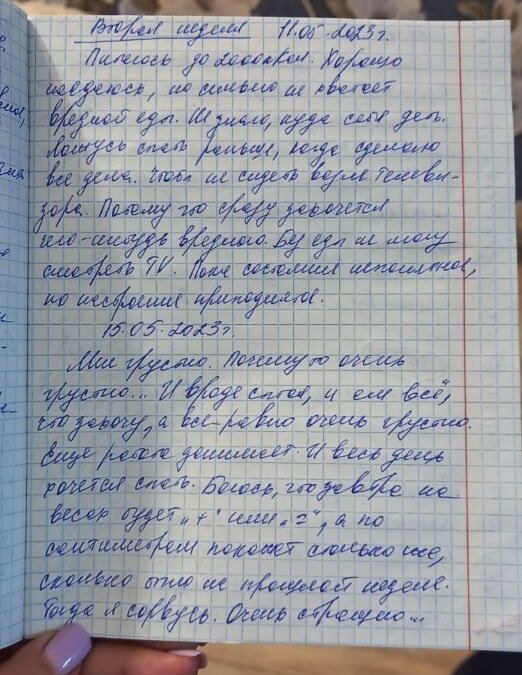 Вторая неделя 11.05.2023г.
Питаюсь до 2000ккал. Хорошо
наедаюсь, но сильно не хватает
вредной еды. Не знаю, куда себя деть.
Ложусь спать раньше, когда сделаю
все дела. Чтобы не сидеть возле телеви-
зора. Потому что сразу захочется
чего-нибудь вредного. Без еды не могу
смотреть TV. Пока состояния непонятное,
но настроения приподнятое.
15.05.2023г.
Мне грустно. Почему то очень
грустно... И вроде сытая, и ем всё,
что захочу, а всё-равно очень грустно.
Еще работа донимает. И весь день
хочется спать. Боюсь, что завтра на
весах будет "+" или "=", а по
сантиметрам покажет столько же,
сколько было на прошлой неделе.
Тогда я сорвусь. Очень страшно...